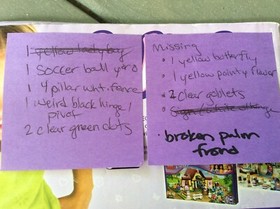 1 yellow lady bug
1 soccer ball
1 4 pillar wht. fence
1 weird black hinge /
pivot
2 clear green dots
Missing
• 1 yellow butterfly
• 1 yellow pointy
• 2 clear goblets
• broken palm
frond